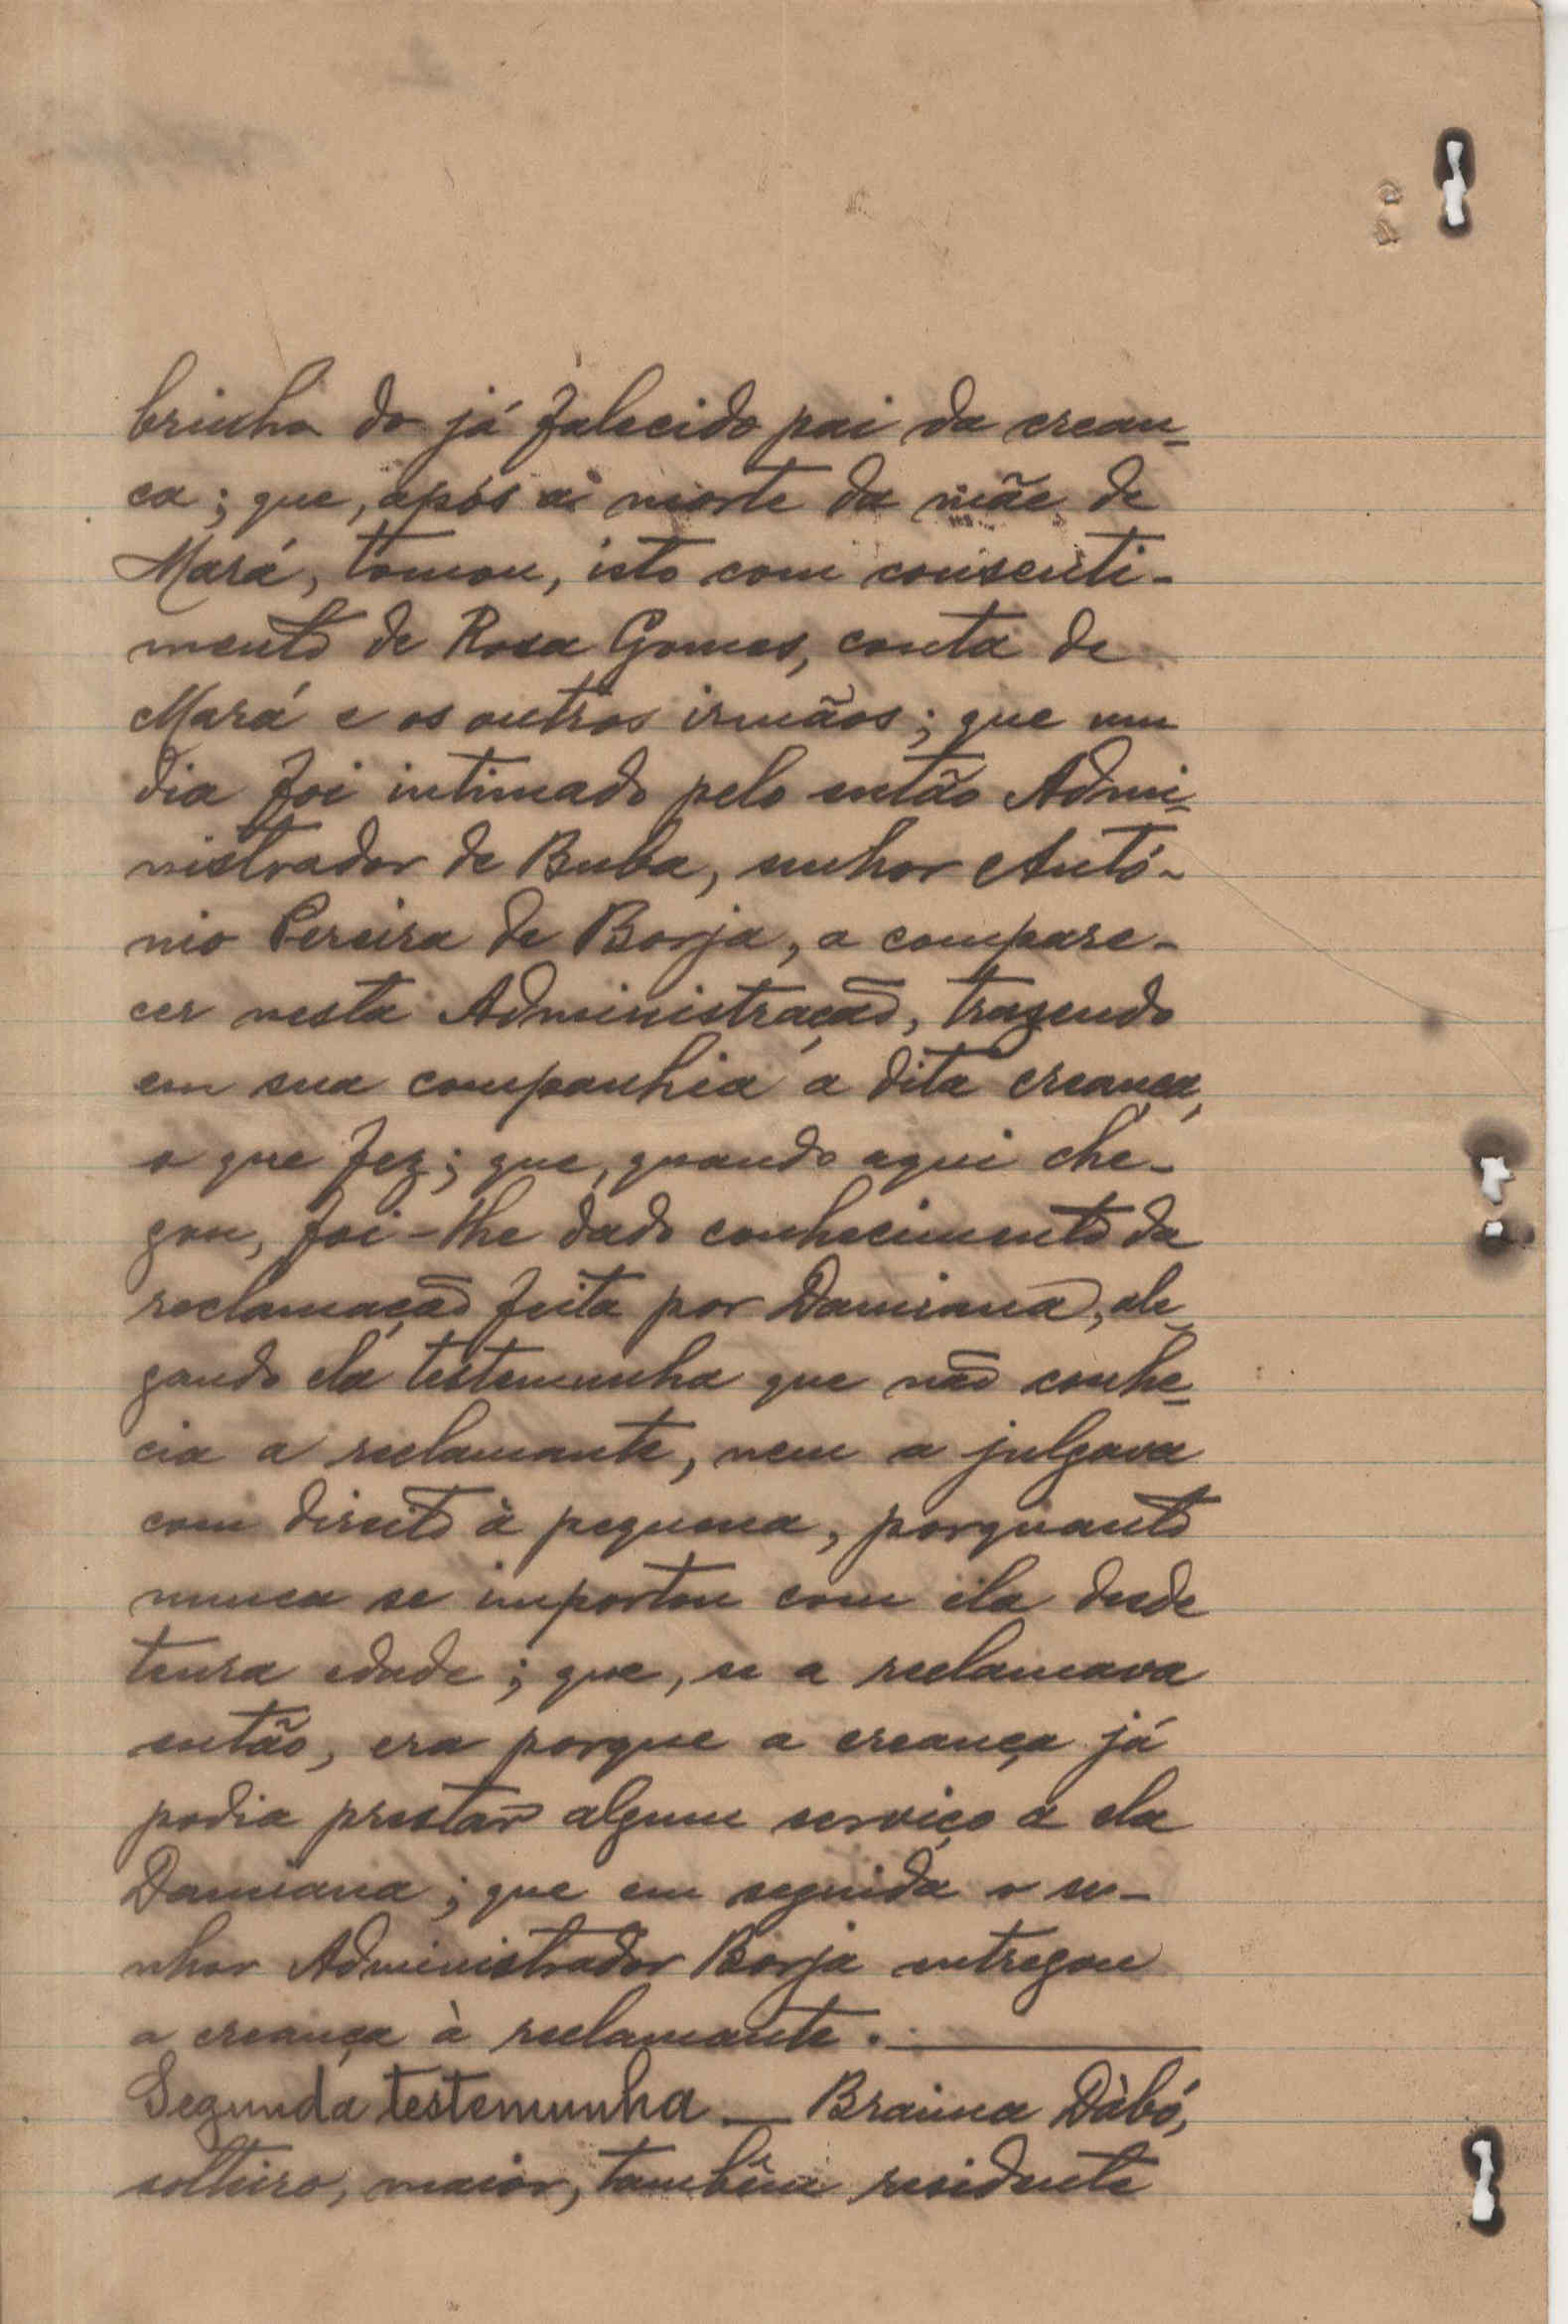 brinho do já falecido pai da crean-
ça; que, após a morte da mãe de
Mará, tomou, isto com consenti-
mento de Rosa Gomes, conta de
Mará e os outros irmãos; que um
dia foi intimado pelo então Admi-
nistrador de Buba, senhor Antó-
nio Pereira de Borja, a compare-
cer nesta Administração, trazendo
em sua companhia a dita creança,
o que fez; que, quando aqui che-
gou, foi-lhe dado conhecimento da
reclamação feita por Damiana, ale-
gando ela testemunha que não conhe-
cia a reclamante, nem a julgava
com direito à pequena, porquanto
nunca se importou com ela desde
tenra edade; que, se a reclamava
então, era porque a creança já
podia prestar algum serviço a ela
Damiana; que em seguida o se-
nhor Administrador Borja entregou
a creança à reclamante.
Segunda testemunha — Braima Dàbó,
solteiro, maior, tambêm residente